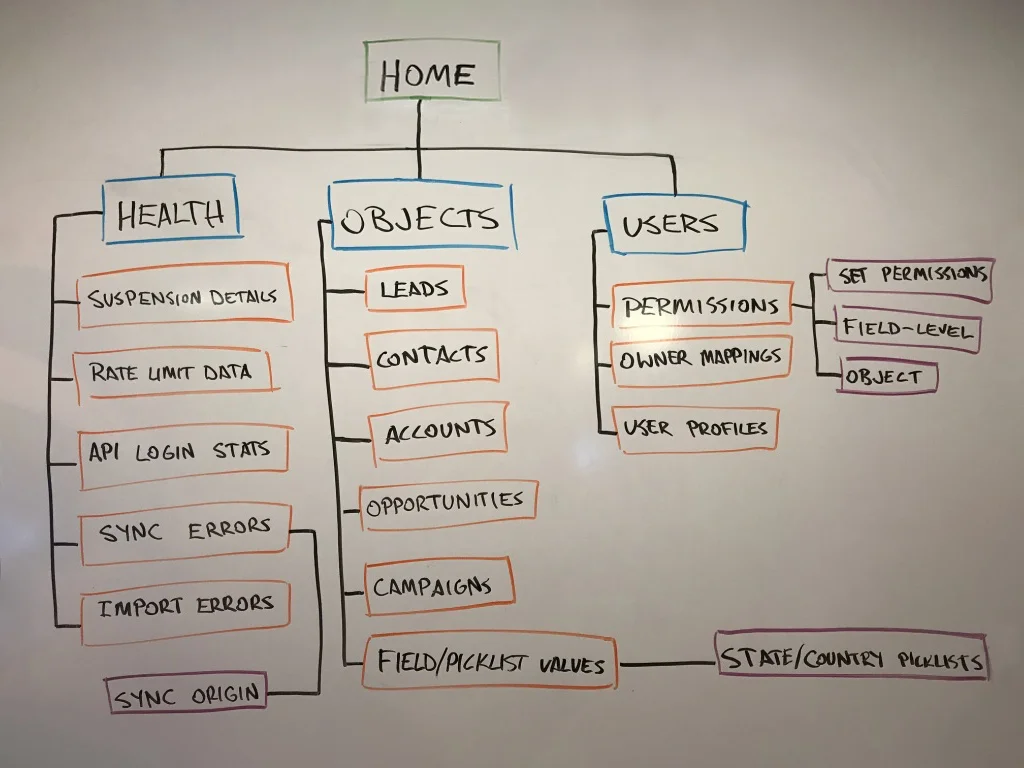 HOME
HEALTH
SUSPENSION DETAILS
RATE LIMIT DATA
API LOGIN STATS
SYNC ERRORS
IMPORT ERRORS
SYNC ORIGIN
OBJECTS
LEADS
CONTACTS
ACCOUNTS
OPPORTUNITIES
CAMPAIGNS
FIELD/PICKLIST VALUES
STATE/COUNTRY PICKLISTS
USERS
PERMISSIONS
SET PERMISSIONS
FIELD-LEVEL
OBJECT
OWNER MAPPINGS
USER PROFILES